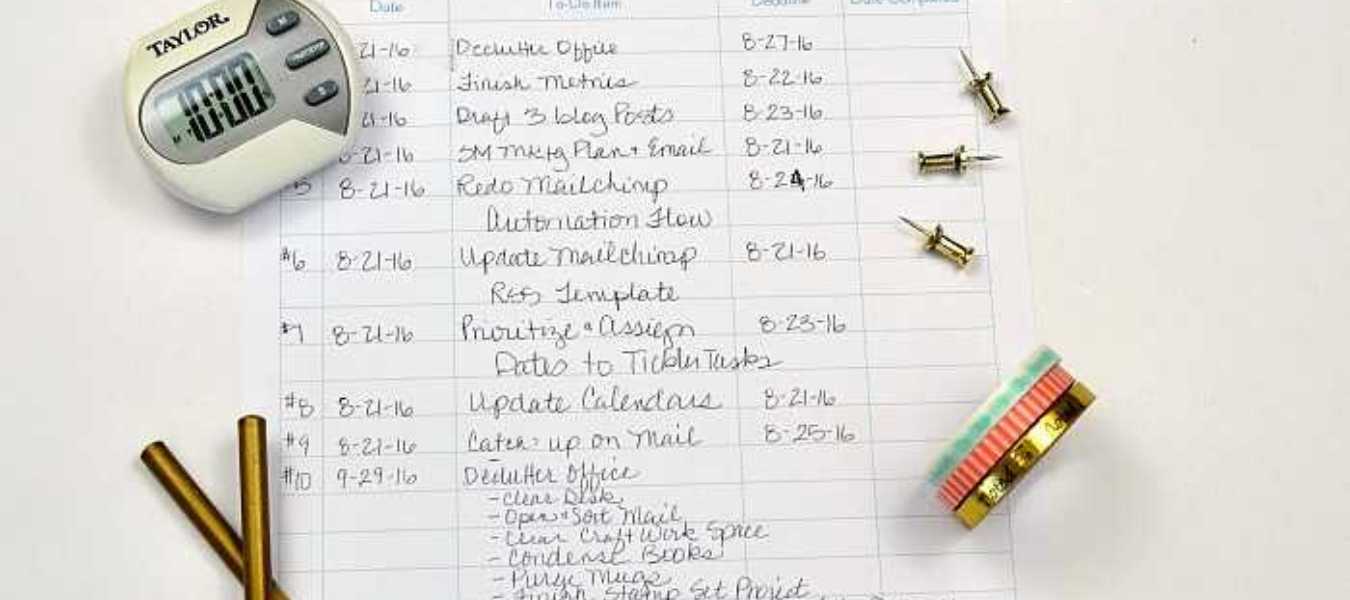 TAYLOR
10:00
Date To-Do Item Deadline Date Completed
21-16 Declutter Office 8-27-16
21-16 Finish Metrics 8-22-16
21-16 Draft 3 blog Posts 8-23-16
8-21-16 SM Mktg Plan + Email 8-21-16
#5 8-21-16 Redo Mailchimp 8-24-16
Automation Flow
#6 8-21-16 Update Mailchimp 8-21-16
RSS Template
#7 8-21-16 Prioritize + Assign 8-23-16
Dates to Tickler Tasks
#8 8-21-16 Update Calendars 8-21-16
#9 8-21-16 Catch-up on Mail 8-25-16
#10 9-29-16 Declutter Office
- Clear Desk
- Open + Sort Mail
- Clear Craft Work Space
- Condense Books
- Purge Mugs
- Finish Stamp Set Project